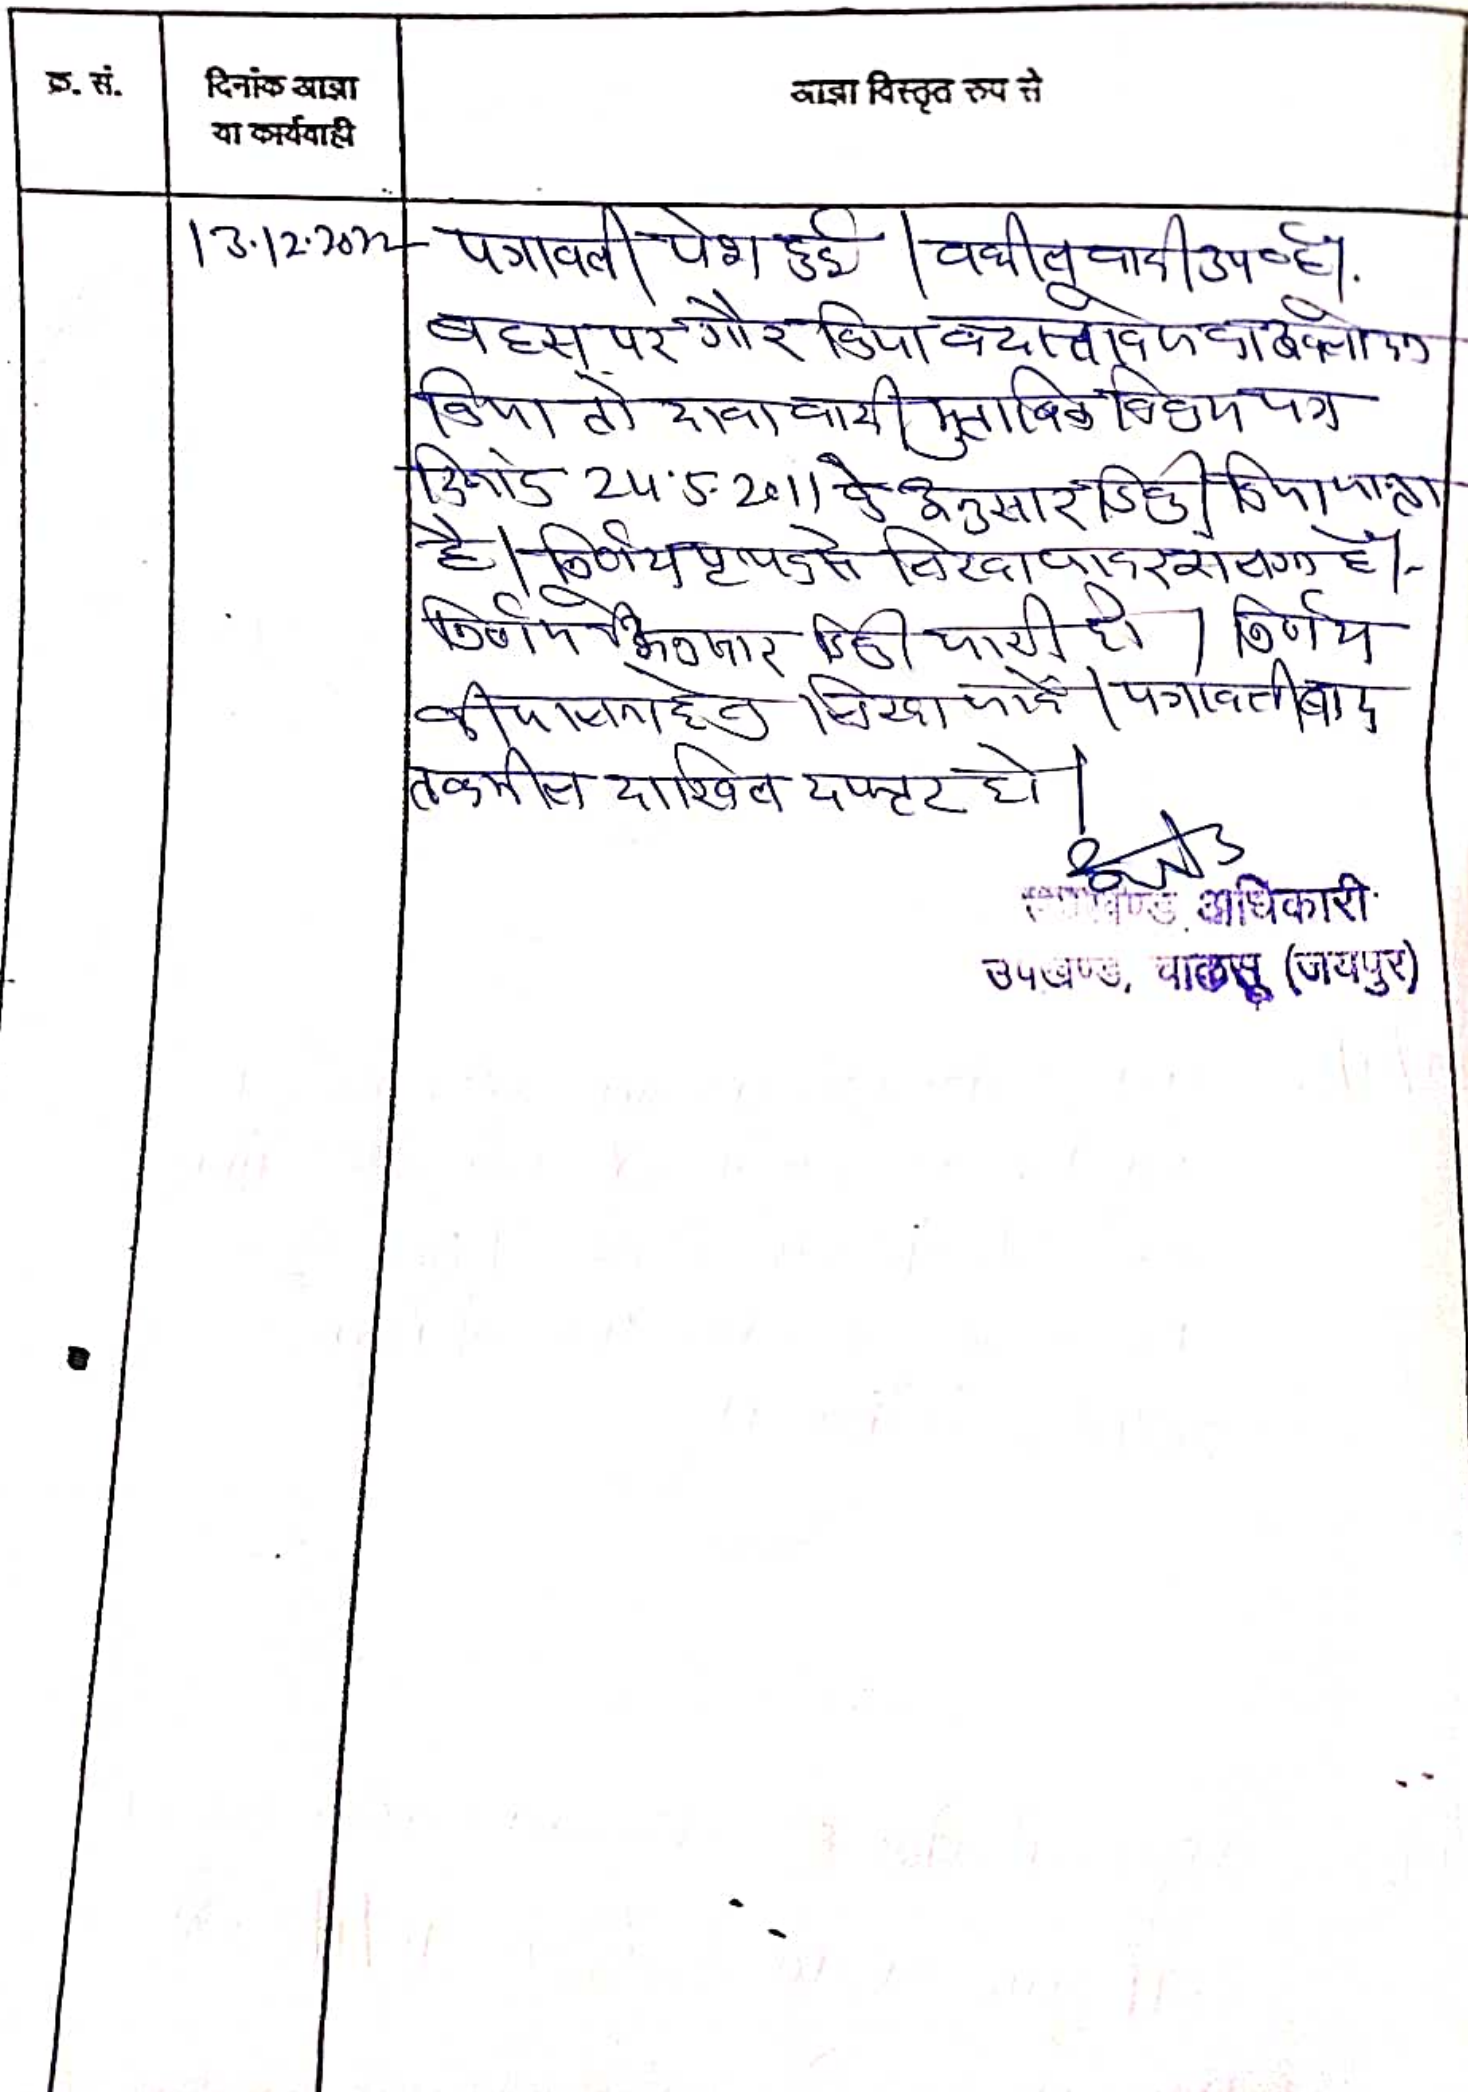 क्र. सं.
दिनांक आज्ञा
या कार्यवाही
आज्ञा विस्तृत रुप से
13.12.2022 पत्रावली पेश हुई | वकील वादी उप० है|.
बहस पर गौर किया व दस्तावेज का अवलोकन
किया तो दावा वादी मुताबिक विक्रय पत्र
दिनांक 24.5.2011 के अनुसार डिक्री किया जाता
है | निर्णय पृथक से लिखा जाकर है|-
निर्णय के अनुसार डिक्री जारी हो | निर्णय
की पालना हेतु लिखा जावें | पत्रावली बाद
तकमील दाखिल दफ्तर हो |
उपखण्ड अधिकारी
उपखण्ड, चाकसू (जयपुर)